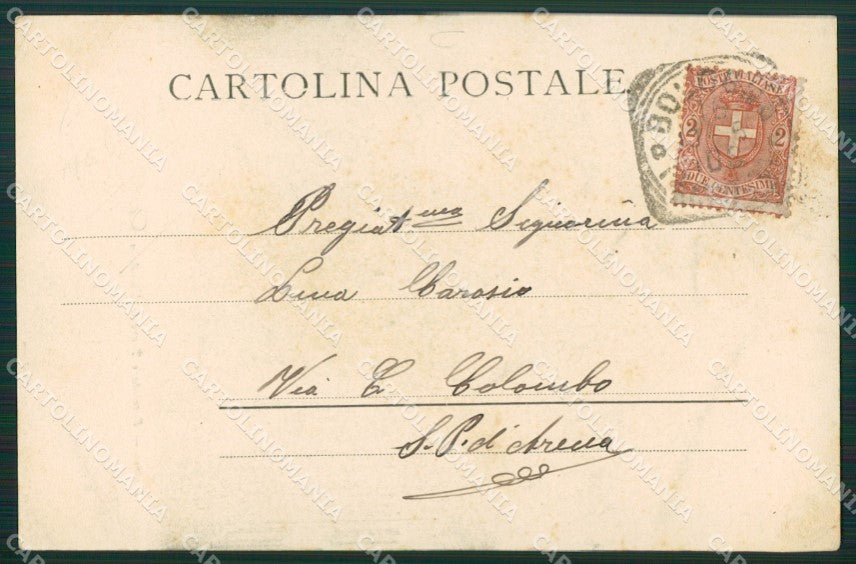 CARTOLINA POSTALE
POSTE ITALIANE
2 2
DUE CENTESIMI
Pregiat ma Signorina
Lina Carosio
Via C. Colombo
S. P. d'Arena
CARTOLINOMANIA